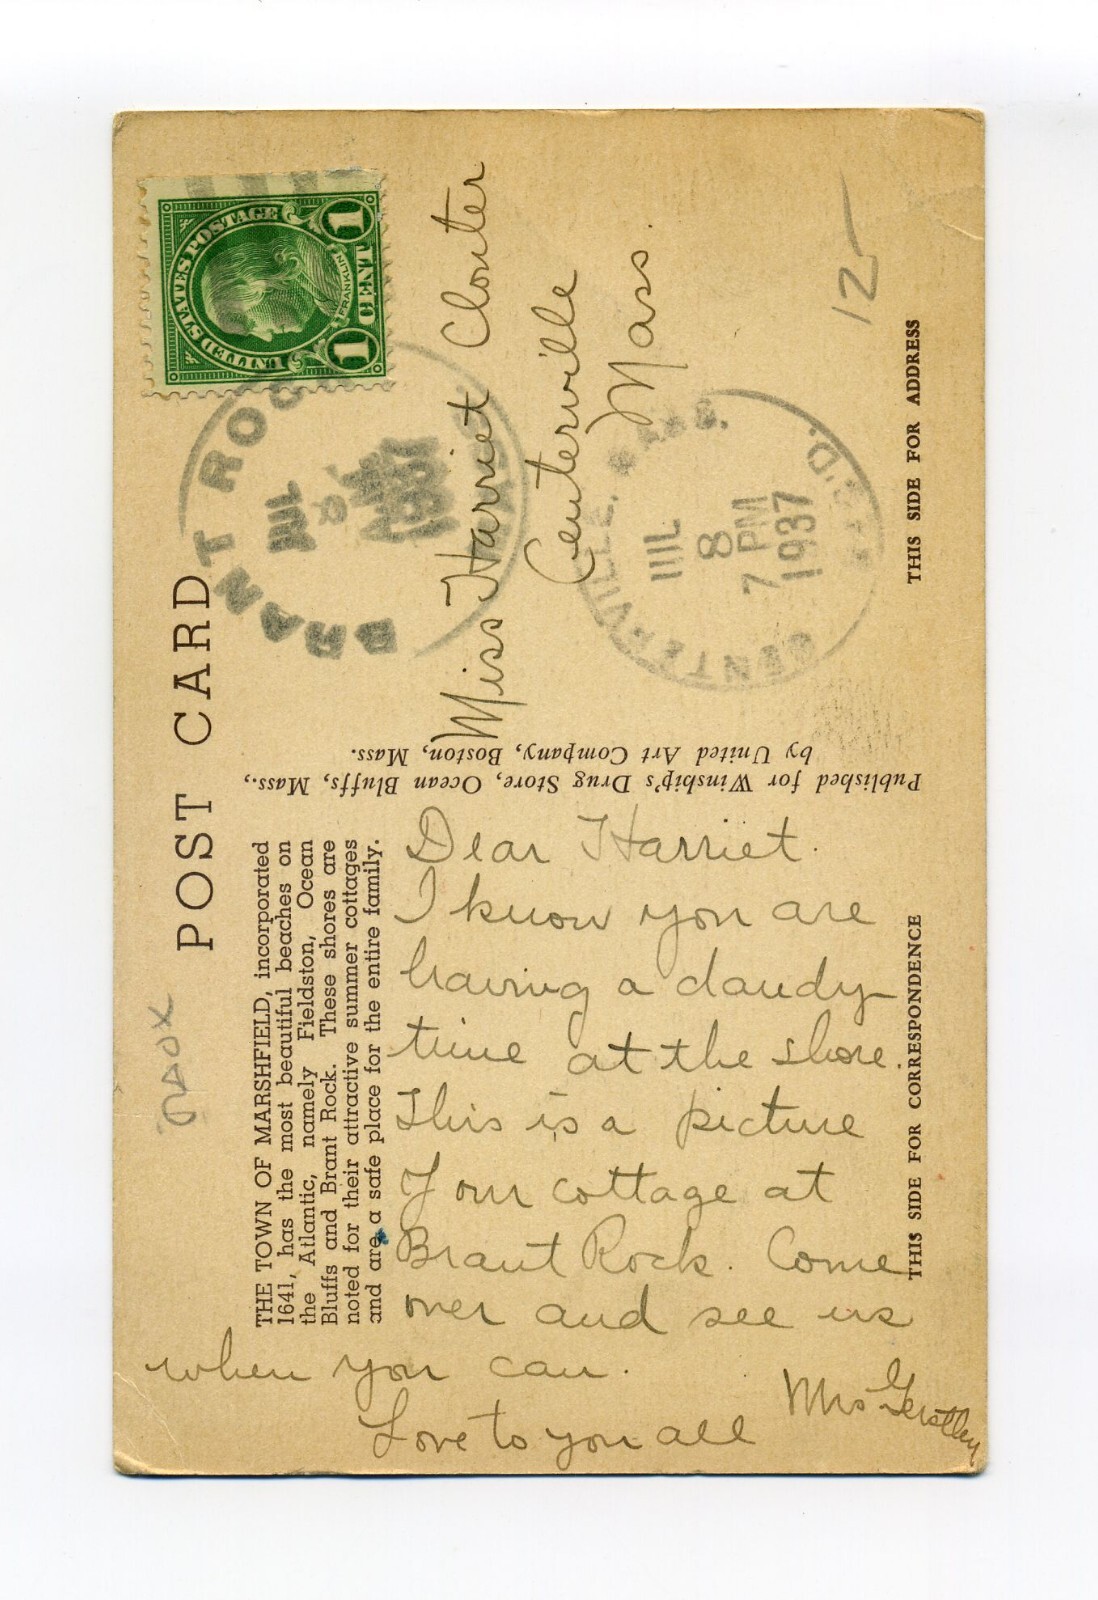 POST CARD
THE TOWN OF MARSHFIELD, incorporated
1641, has the most beautiful beaches on
the Atlantic, namely Fieldston, Ocean
Bluffs and Brant Rock. These shores are
noted for their attractive summer cottages
and are a safe place for the entire family.
Dear Harriet.
I know you are
having a dandy
time at the shore.
This is a picture
of our cottage at
Brant Rock. Come
over and see us
when you can.
Love to you all
Mrs
Published for Winship's Drug Store, Ocean Bluffs, Mass.,
by United Art Company, Boston, Mass.
UNITED STATES POSTAGE
FRANKLIN
1 CENT 1
BRANT ROCK
JUL
8
Miss Harriet
Centerville
Mass.
CENTERVILLE. MASS.
JUL
8
7 PM
1937
REC'D.
12
THIS SIDE FOR CORRESPONDENCE
THIS SIDE FOR ADDRESS